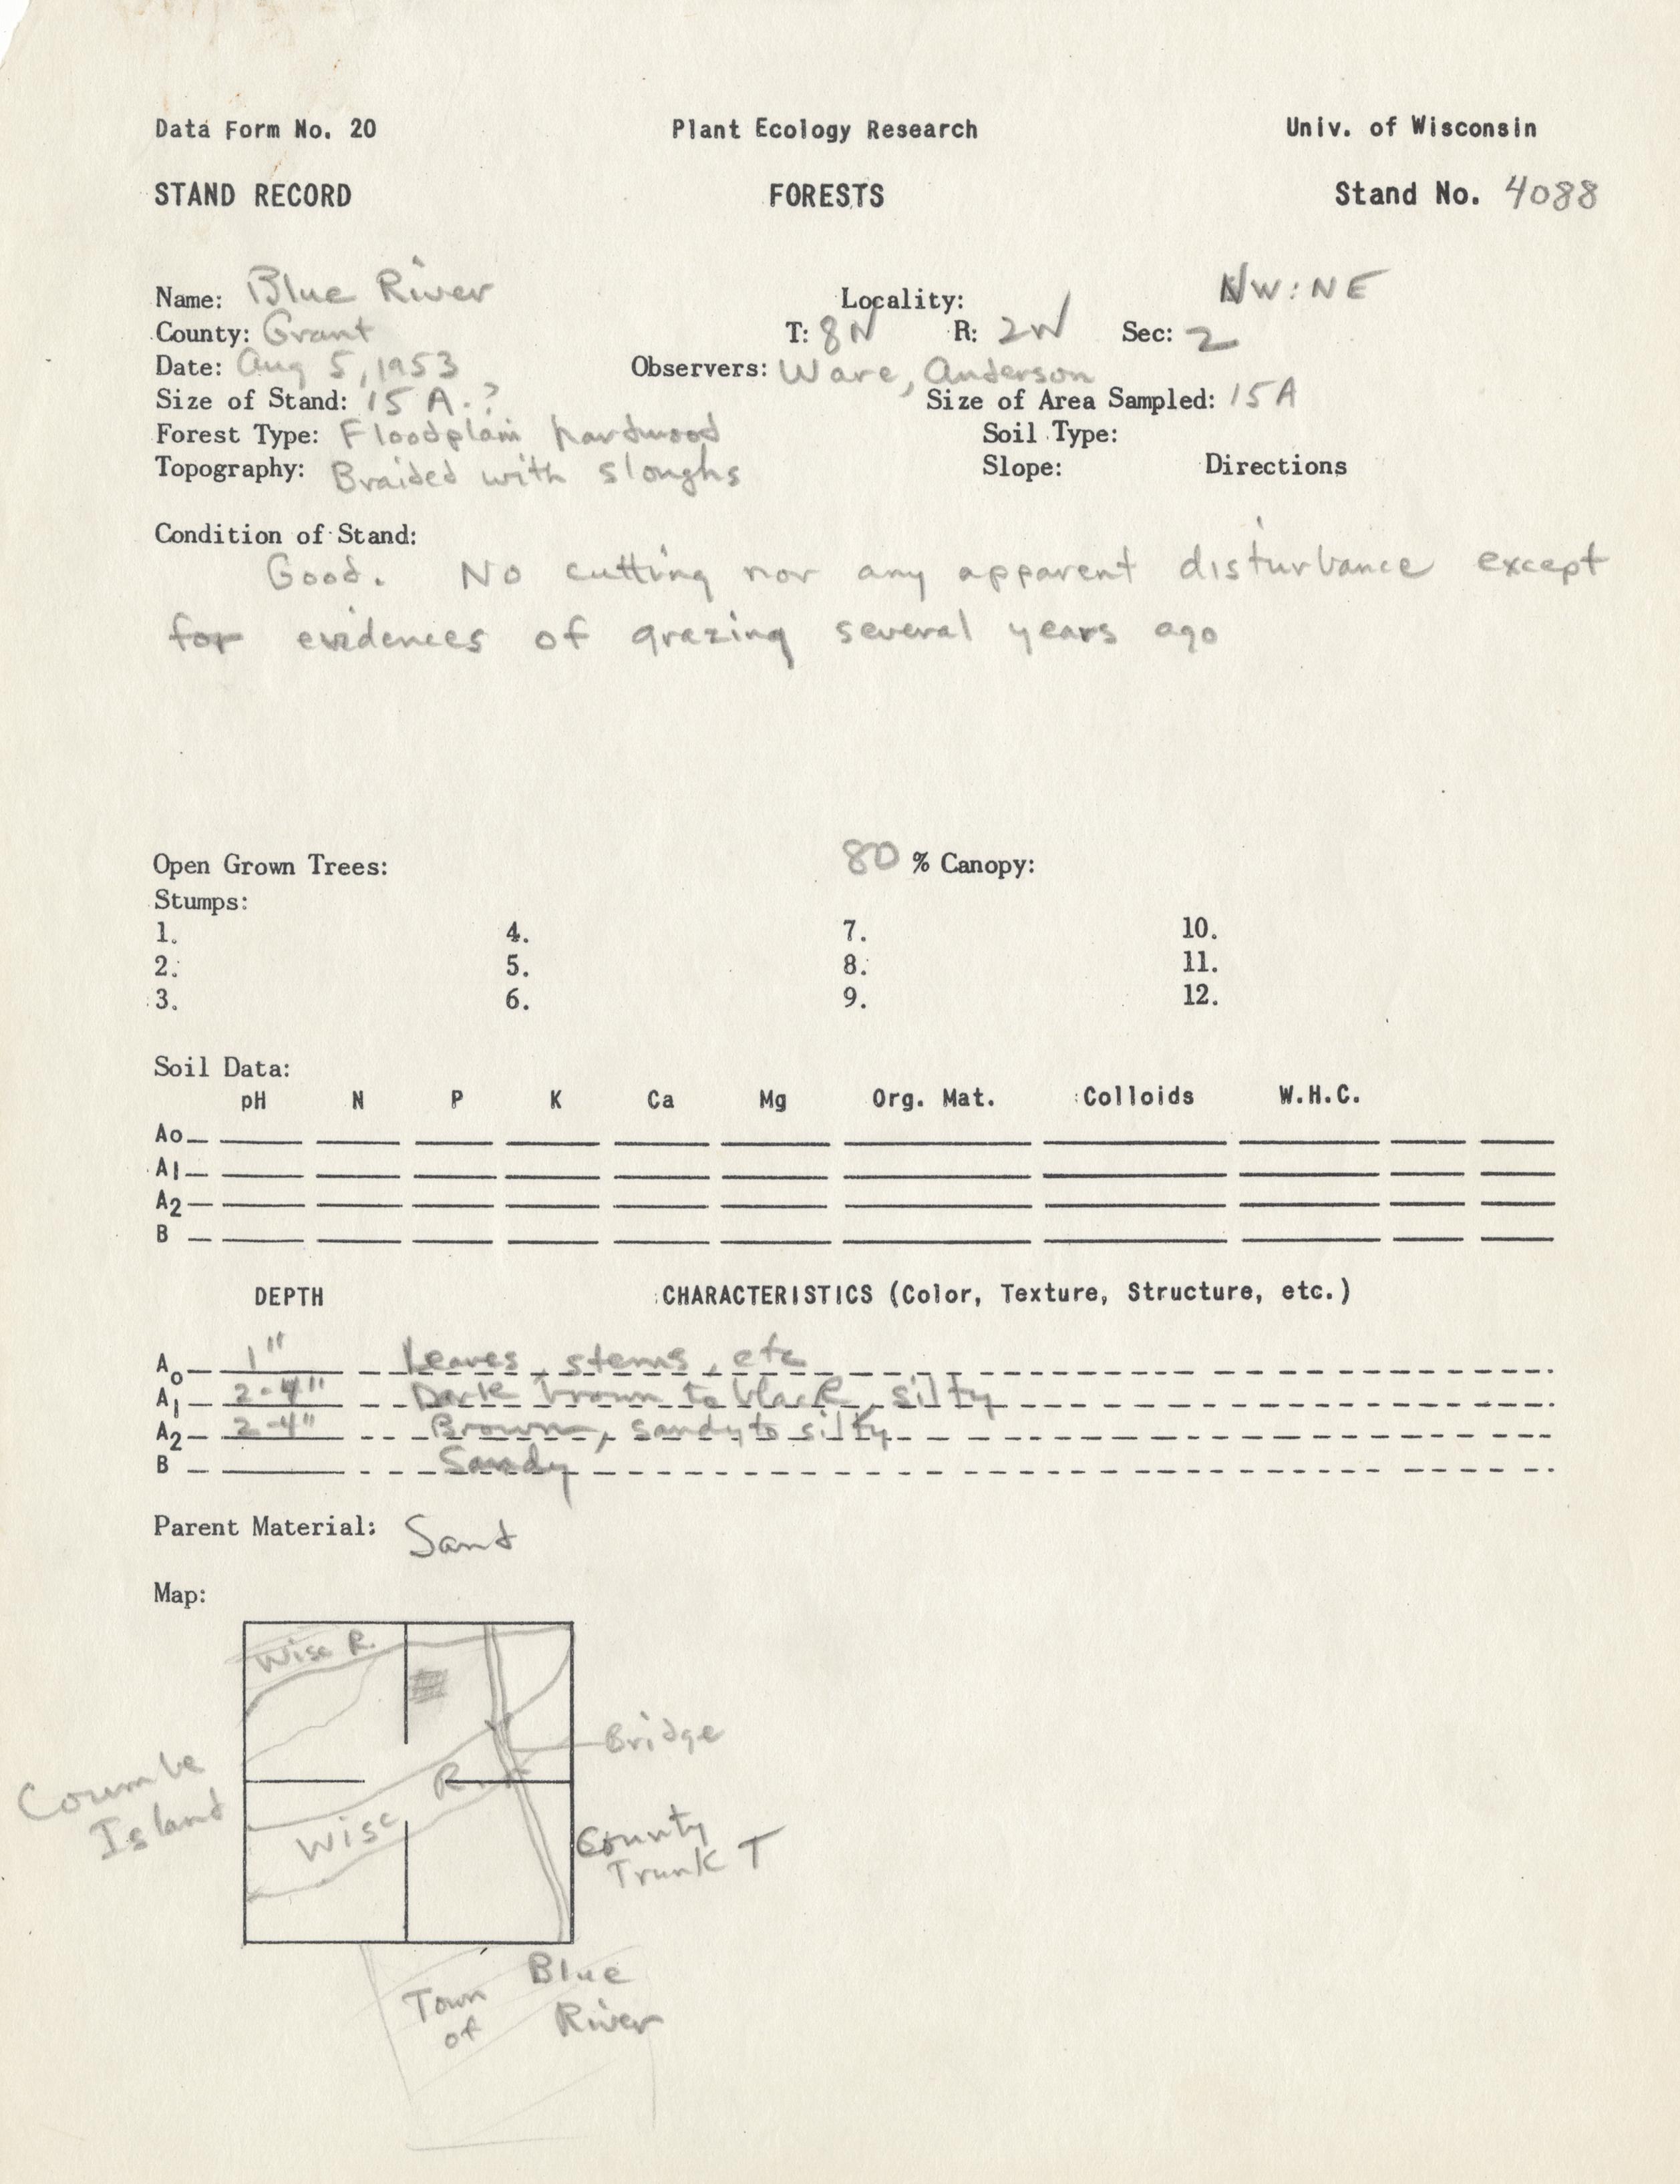 Data Form No. 20 Plant Ecology Research Univ. of Wisconsin
STAND RECORD FORESTS Stand No. 4088
Name: Blue River Locality: NW:NE
County: Grant T: 8N R: 2W Sec: 2
Date: Aug 5, 1953 Observers: Ware, Anderson
Size of Stand: 15 A.? Size of Area Sampled: 15A
Forest Type: Floodplain hardwood Soil Type:
Topography: Braided with sloughs Slope: Directions
Condition of Stand:
Good. No cutting nor any apparent disturbance except
for evidences of grazing several years ago
Open Grown Trees: 80 % Canopy:
Stumps:
1. 4. 7. 10.
2. 5. 8. 11.
3. 6. 9. 12.
Soil Data:
pH N P K Ca Mg Org. Mat. Colloids W.H.C.
Ao
A1
A2
B
DEPTH CHARACTERISTICS (Color, Texture, Structure, etc.)
Ao 1" Leaves, stems, etc
A1 2-4" Dark brown to black, silty
A2 2-4" Brown, sandy to silty
B Sandy
Parent Material: Sand
Map:
Wisc R.
Bridge
Coumbe
Island
Wisc R.
County
Trunk T
Town of
Blue River